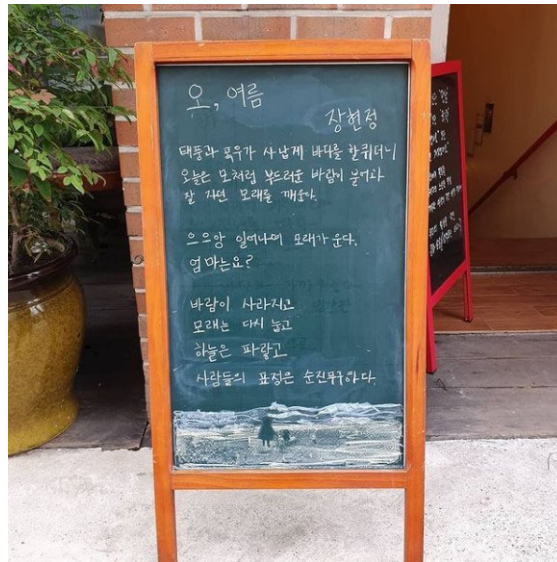 오, 여름
장현정
태풍과 폭우가 사납게 바다를 할퀴더니
오늘은 모처럼 부드러운 바람이 불어와
잘 자던 모래를 깨운다.
으으앙 일어나며 모래가 운다.
엄마는요?
바람이 사라지고
모래는 다시 눕고
하늘은 파랗고
사람들의 표정은 순진무구하다.